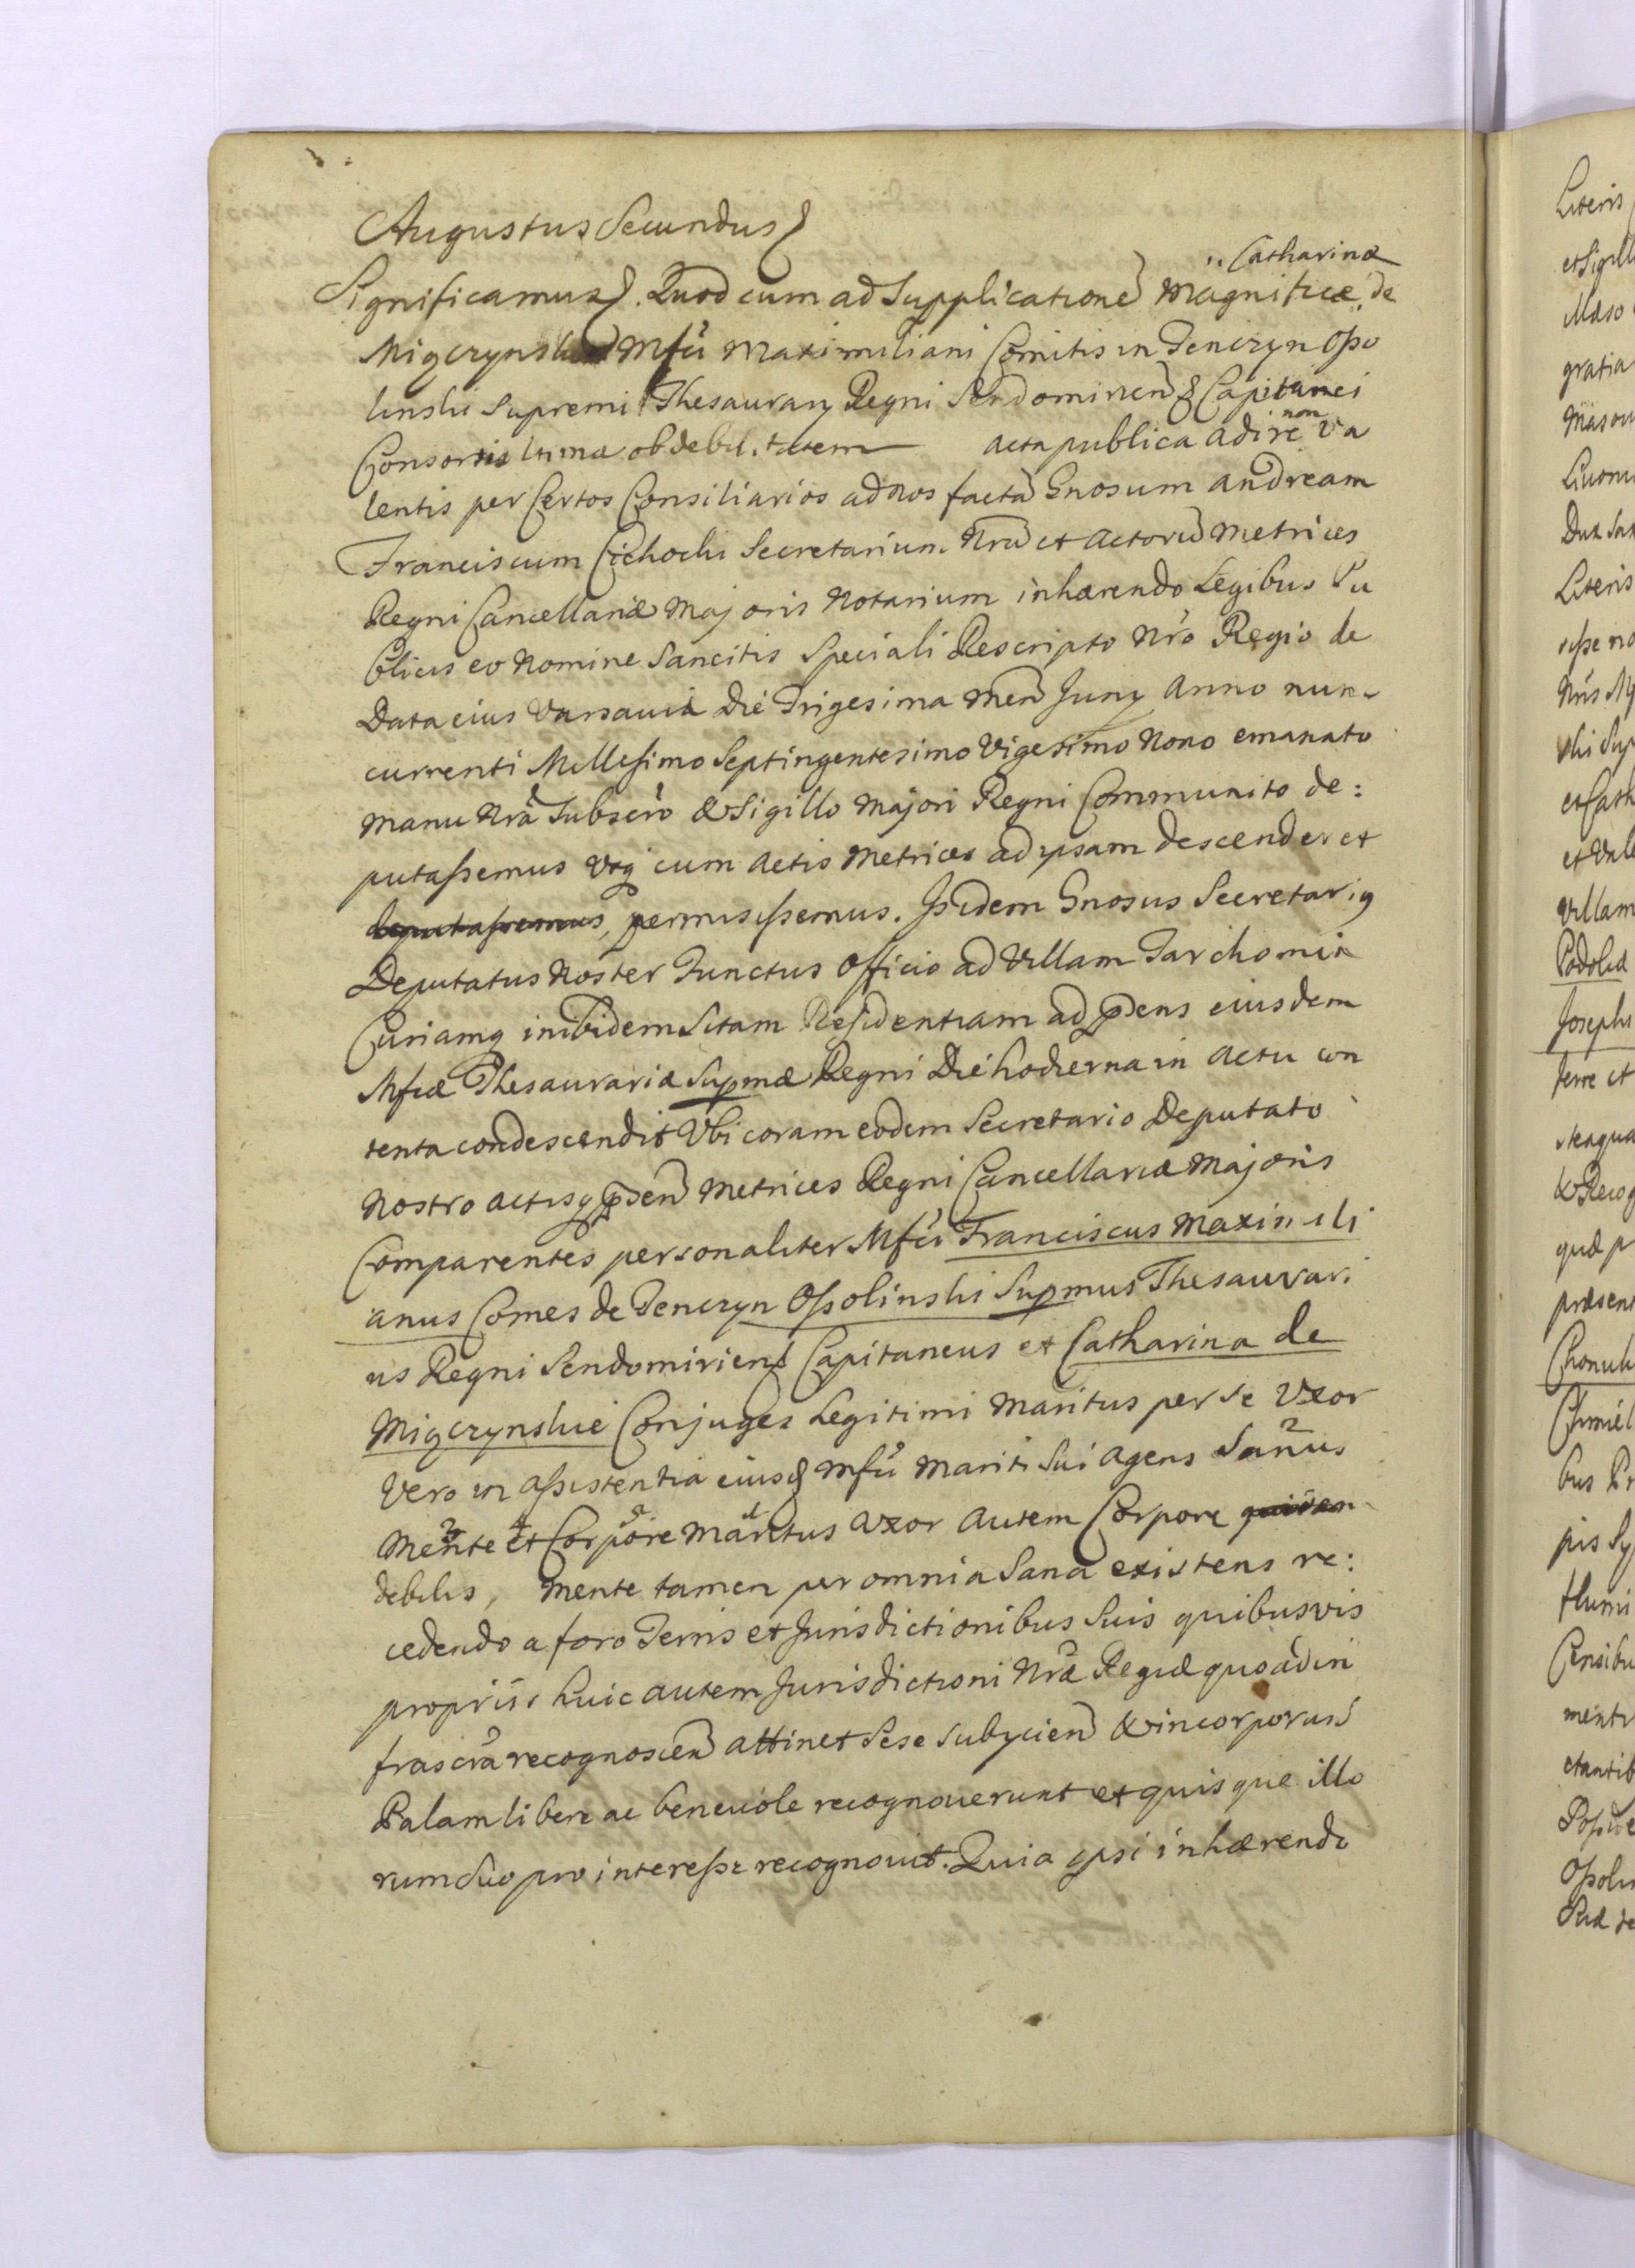 Augustus Secundus
Catharinæ
Significamus. Quod cum ad Supplicationē Magnificæ de
Migczynskie Mfci Maximiliani Comitis in Tenczyn Osso
linski Supremi Thesaurary Regni Sendomirien & Capitanei
Consortis ltimæ ob debilitatem acta publica adire non va
lentis per Certos Consiliarios ad nos factā Gnosum Andream
Franciscum Cichocki Secretarium Nrū et Actorū Metrices
Regni Cancellariæ Majoris Notarium inhærendo Legibus Pu
blicis eo Nomine Sancitis Speciali Rescripto Nr̃o Regio de
Data eius Varsaviæ Die Trigesima Men Juny Anno nunc
currenti Millesimo Septingentesimo Vigesimo Nono emanato
Manu Nrā Subscr̃o & Sigillo Majori Regni Communito de:
putassemus Utq cum Actis Metrices ad ipsam descenderet
deputassemus, permisissemus. Isidem Gnosus Secretarig
Deputatus Noster Junctus Officio ad Villam Tarchomin
Curiamq inibidem Sitam Residentiam ad p̄dens eiusdem
Mfcæ Thesaurariæ Supmæ Regni Die hodierna in Actu con
tenta condescendit Ubi coram eodem Secretario Deputato
Nostro actisq p̄sen Metrices Regni Cancellariæ Majoris
Comparentes personaliter Mfci Franciscus Maximili
anus Comes de Tenczyn Ossolinski Supmus Thesaurari
us Regni Sendomirien Capitaneus et Catharina de
Migczynskie Conjuges Legitimi Maritus per se Uxor
Vero in Assistentia eiusd Mfci Mariti Sui Agens Sanus
Mente et Corpore Maritus Uxor Autem Corpore quidem
debilis, Mente tamen per omnia Sana existens re:
cedendo a foro Terris et Jurisdictionibus Suis quibusvis
propriis huic autem Jurisdictioni Nræ Regiæ quo ad in
frascrā recognoscen attinet Sese Subycien & incorporan
Palam libere ac benevole recognoverunt et quisque illo
rum Suo pro interesse recognovit. Quia ipsi inhærendo